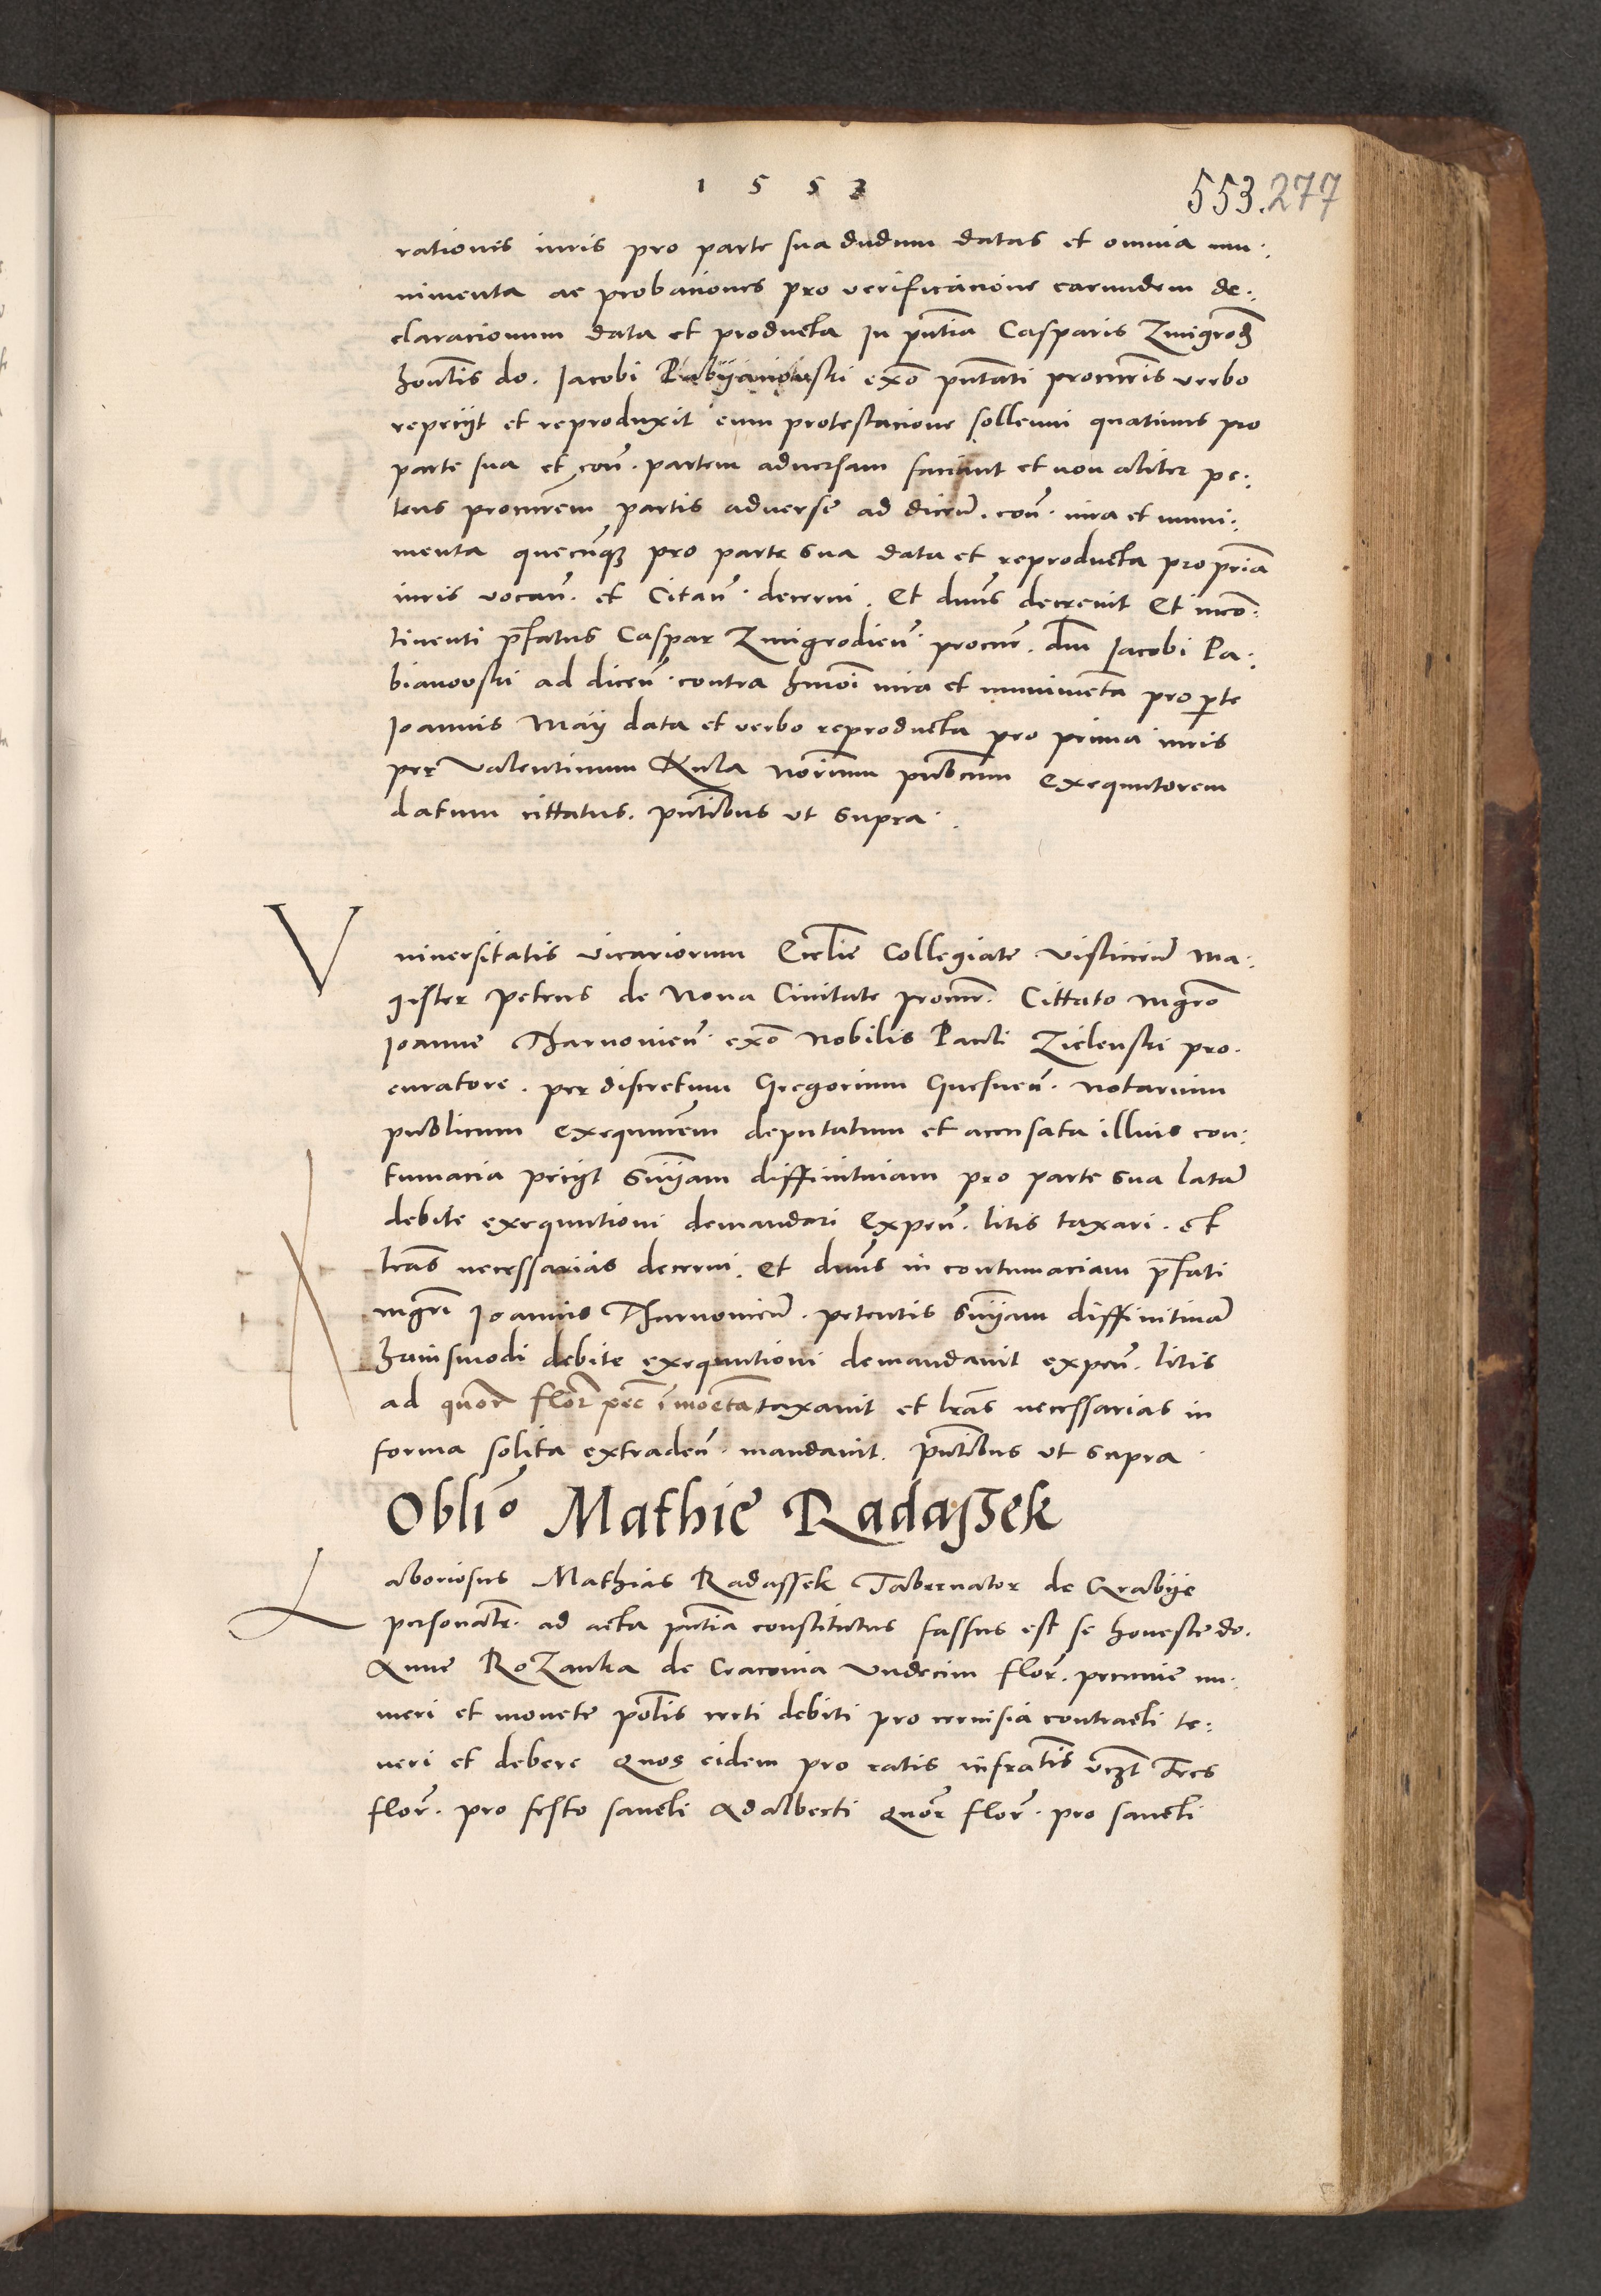 1553
553. 277
rationes iuris pro parte sua dudum datas et omnia mu:
nimenta ac probaciones pro verificacione earundem de:
claracionum data et producta In pntia Casparis Zmigrod
hontis do. Iacobi Pabyianowski exo pntati procuris verbo
repeciit et reproduxit cum protestacione sollenni quatinus pro
parte sua et con. partem adversam faciunt et non aliter pe:
tens procurem partis adverse ad dicen. con. iura et muni:
menta quecunq pro parte sua data et reproducta pro pria
iuris vocan. et Citan. decerni. Et dnus decrevit Et incon:
tinenti pfatus Caspar Zmigrodien. procur. dni Iacobi Pa:
bianovski ad dicen. contra hmoi iura et munimenta pro pte
Ioannis Maij data et verbo reproducta pro prima iuris
per Valentinum Kula norium publicum exequutorem
datum cittatus. pntibus ut supra.
Vniversitatis vicariorum Ecclie Collegiate visliciens Ma:
gister Petrus de Nova Civitate procur. Cittato mgro
Ioanne Tharnovien. exo Nobilis Pauli Zielenski pro.
curatore. per discretum Gregorium Gnesnen. notarium
publicum exequutrem deputatum et accusata illius con:
tumacia peciit sniam diffinitivam pro parte sua latam
debite exequutioni demandari Expen. litis taxari. et
lras necessarias decerni. et dnus in contumaciam pfati
mgri Ioannis Tharnovien. petentis sniam diffinitivam
huiusmodi debite exequutioni demandavit expen. litis
ad quor flor pec i moeta taxavit et lras necessarias in
forma solita extraden. mandavit. pntibus ut supra.
Oblio Mathie Radassek
Laboriosus Mathias Radassek Tabernator de Grabije
personalr. ad acta pntia constitutus fassus est se honeste do.
Anne RoZanka de Cracovia Undecim flor. pecunie nu.
meri et monete polis certi debiti pro cervisia contracti te:
neri et debere Quos eidem pro ratis infratis vczt Tres
flor. pro festo sancti Adalberti Quor flor. pro sancti